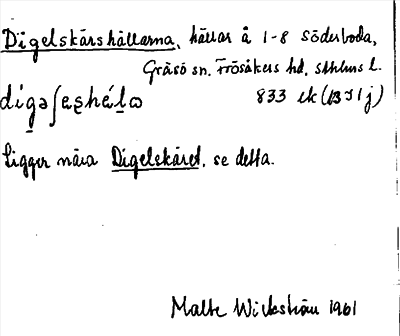 Digelskärshällarna, hällar å 1-8 Söderboda,
Gräsö sn. Frösåkers hd, sthlms l.
833 ek (13I1j)
Ligger nära Digelskäret, se detta.
Malte Wickström 1961